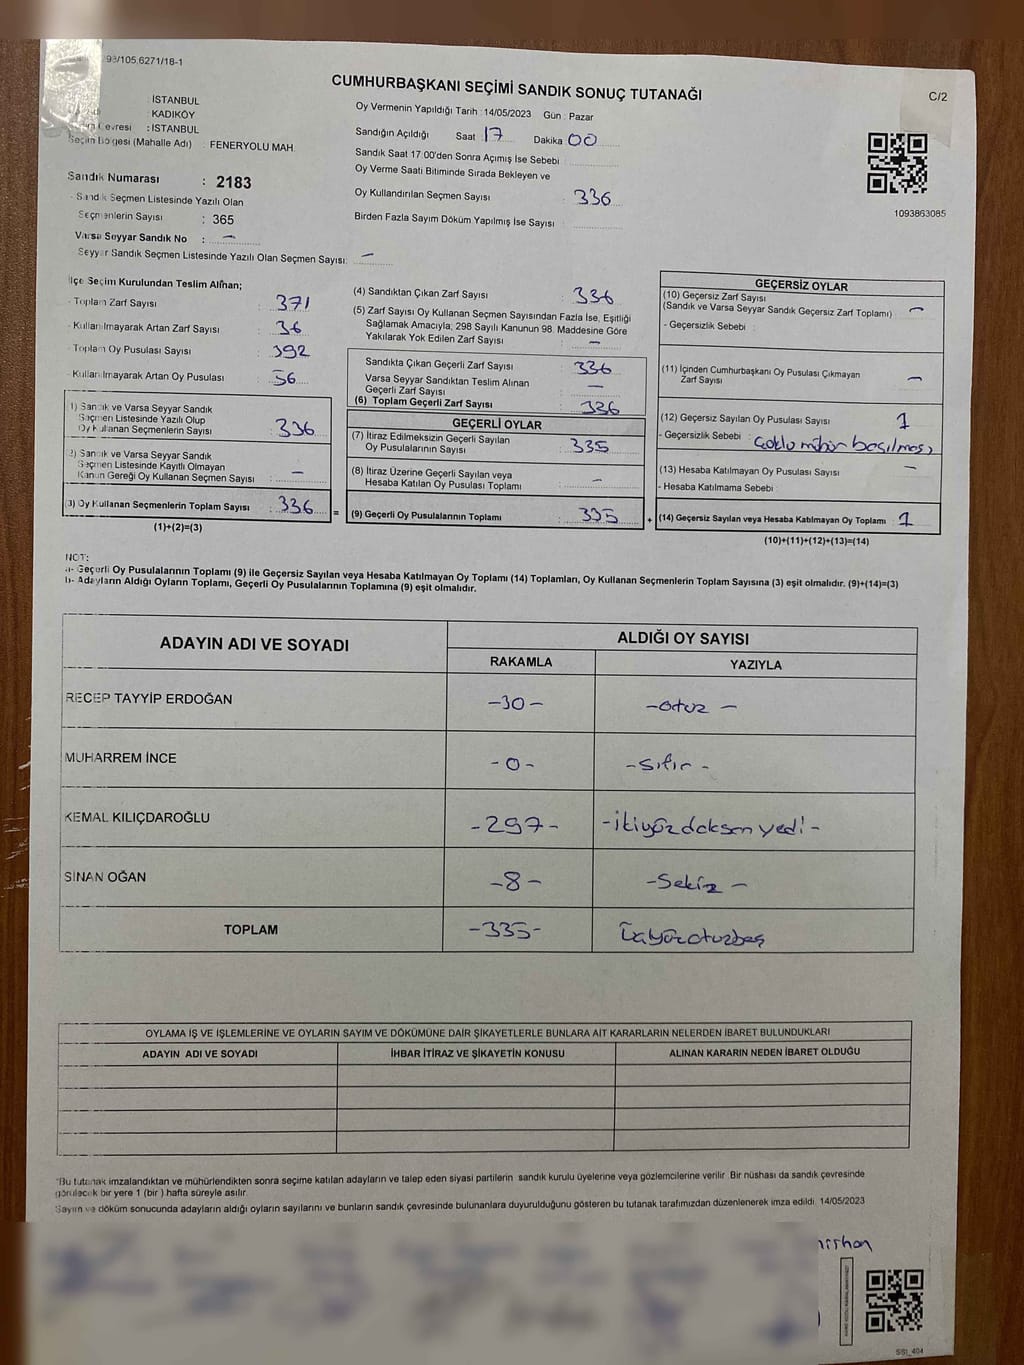 98/105.6271/18-1
CUMHURBAŞKANI SEÇİMİ SANDIK SONUÇ TUTANAĞI
C/2
: İSTANBUL
: KADIKÖY
Çevresi : İSTANBUL
Seçim Bölgesi (Mahalle Adı) : FENERYOLU MAH.
Sandık Numarası : 2183
- Sandık Seçmen Listesinde Yazılı Olan
Seçmenlerin Sayısı : 365
Varsa Seyyar Sandık No : -
- Seyyar Sandık Seçmen Listesinde Yazılı Olan Seçmen Sayısı: -
Oy Vermenin Yapıldığı Tarih : 14/05/2023 Gün : Pazar
Sandığın Açıldığı Saat 17 Dakika 00
Sandık Saat 17:00'den Sonra Açımış İse Sebebi
Oy Verme Saati Bitiminde Sırada Bekleyen ve
Oy Kullandırılan Seçmen Sayısı : 336
Birden Fazla Sayım Döküm Yapılmış İse Sayısı :
1093863085
İlçe Seçim Kurulundan Teslim Alınan;
- Toplam Zarf Sayısı : 371
- Kullanılmayarak Artan Zarf Sayısı : 36
- Toplam Oy Pusulası Sayısı : 392
- Kullanılmayarak Artan Oy Pusulası : 56
1) Sandık ve Varsa Seyyar Sandık
Seçmen Listesinde Yazılı Olup
Oy Kullanan Seçmenlerin Sayısı : 336
2) Sandık ve Varsa Seyyar Sandık
Seçmen Listesinde Kayıtlı Olmayan
Kanun Gereği Oy Kullanan Seçmen Sayısı : -
(3) Oy Kullanan Seçmenlerin Toplam Sayısı : 336 =
(1)+(2)=(3)
(4) Sandıktan Çıkan Zarf Sayısı : 336
(5) Zarf Sayısı Oy Kullanan Seçmen Sayısından Fazla İse, Eşitliği
Sağlamak Amacıyla; 298 Sayılı Kanunun 98. Maddesine Göre
Yakılarak Yok Edilen Zarf Sayısı : -
Sandıkta Çıkan Geçerli Zarf Sayısı : 336
Varsa Seyyar Sandıktan Teslim Alınan
Geçerli Zarf Sayısı : -
(6) Toplam Geçerli Zarf Sayısı : 336
GEÇERLİ OYLAR
(7) İtiraz Edilmeksizin Geçerli Sayılan
Oy Pusulalarının Sayısı : 335
(8) İtiraz Üzerine Geçerli Sayılan veya
Hesaba Katılan Oy Pusulası Toplamı : -
(9) Geçerli Oy Pusulalarının Toplamı : 335 +
GEÇERSİZ OYLAR
(10) Geçersiz Zarf Sayısı
(Sandık ve Varsa Seyyar Sandık Geçersiz Zarf Toplamı) : -
- Geçersizlik Sebebi :
(11) İçinden Cumhurbaşkanı Oy Pusulası Çıkmayan
Zarf Sayısı : -
(12) Geçersiz Sayılan Oy Pusulası Sayısı : 1
- Geçersizlik Sebebi : Çoklu mühür basılması
(13) Hesaba Katılmayan Oy Pusulası Sayısı : -
- Hesaba Katılmama Sebebi :
(14) Geçersiz Sayılan veya Hesaba Katılmayan Oy Toplamı : 1
(10)+(11)+(12)+(13)=(14)
NOT:
a- Geçerli Oy Pusulalarının Toplamı (9) ile Geçersiz Sayılan veya Hesaba Katılmayan Oy Toplamı (14) Toplamları, Oy Kullanan Seçmenlerin Toplam Sayısına (3) eşit olmalıdır. (9)+(14)=(3)
b- Adayların Aldığı Oyların Toplamı, Geçerli Oy Pusulalarının Toplamına (9) eşit olmalıdır.
ADAYIN ADI VE SOYADI ALDIĞI OY SAYISI
RAKAMLA YAZIYLA
RECEP TAYYİP ERDOĞAN -30- -otuz-
MUHARREM İNCE -0- -sıfır-
KEMAL KILIÇDAROĞLU -297- -ikiyüzdoksanyedi-
SİNAN OĞAN -8- -Sekiz-
TOPLAM -335- Üçyüzotuzbeş
OYLAMA İŞ VE İŞLEMLERİNE VE OYLARIN SAYIM VE DÖKÜMÜNE DAİR ŞİKAYETLERLE BUNLARA AİT KARARLARIN NELERDEN İBARET BULUNDUKLARI
ADAYIN ADI VE SOYADI İHBAR İTİRAZ VE ŞİKAYETİN KONUSU ALINAN KARARIN NEDEN İBARET OLDUĞU
*Bu tutanak imzalandıktan ve mühürlendikten sonra seçime katılan adayların ve talep eden siyasi partilerin sandık kurulu üyelerine veya gözlemcilerine verilir. Bir nüshası da sandık çevresinde
görülecek bir yere 1 (bir) hafta süreyle asılır.
Sayım ve döküm sonucunda adayların aldığı oyların sayılarını ve bunların sandık çevresinde bulunanlara duyurulduğunu gösteren bu tutanak tarafımızdan düzenlenerek imza edildi. 14/05/2023
SSI_404